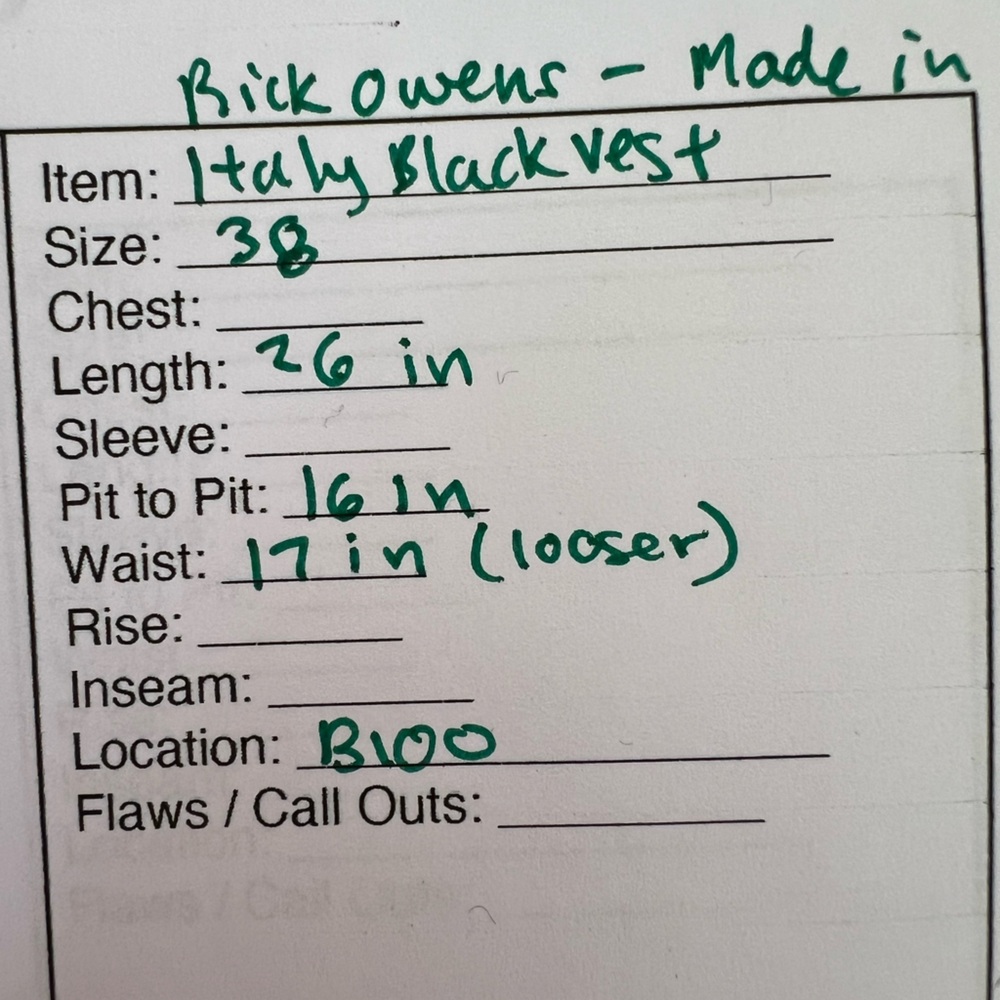 Rick Owens - Made in
Item: Italy Black vest
Size: 38
Chest:
Length: 26 in
Sleeve:
Pit to Pit: 16 in
Waist: 17 in (looser)
Rise:
Inseam:
Location: B100
Flaws / Call Outs: